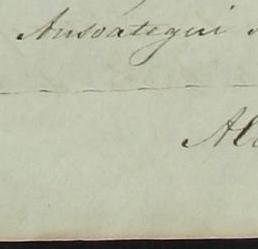 Ansoategui
Al